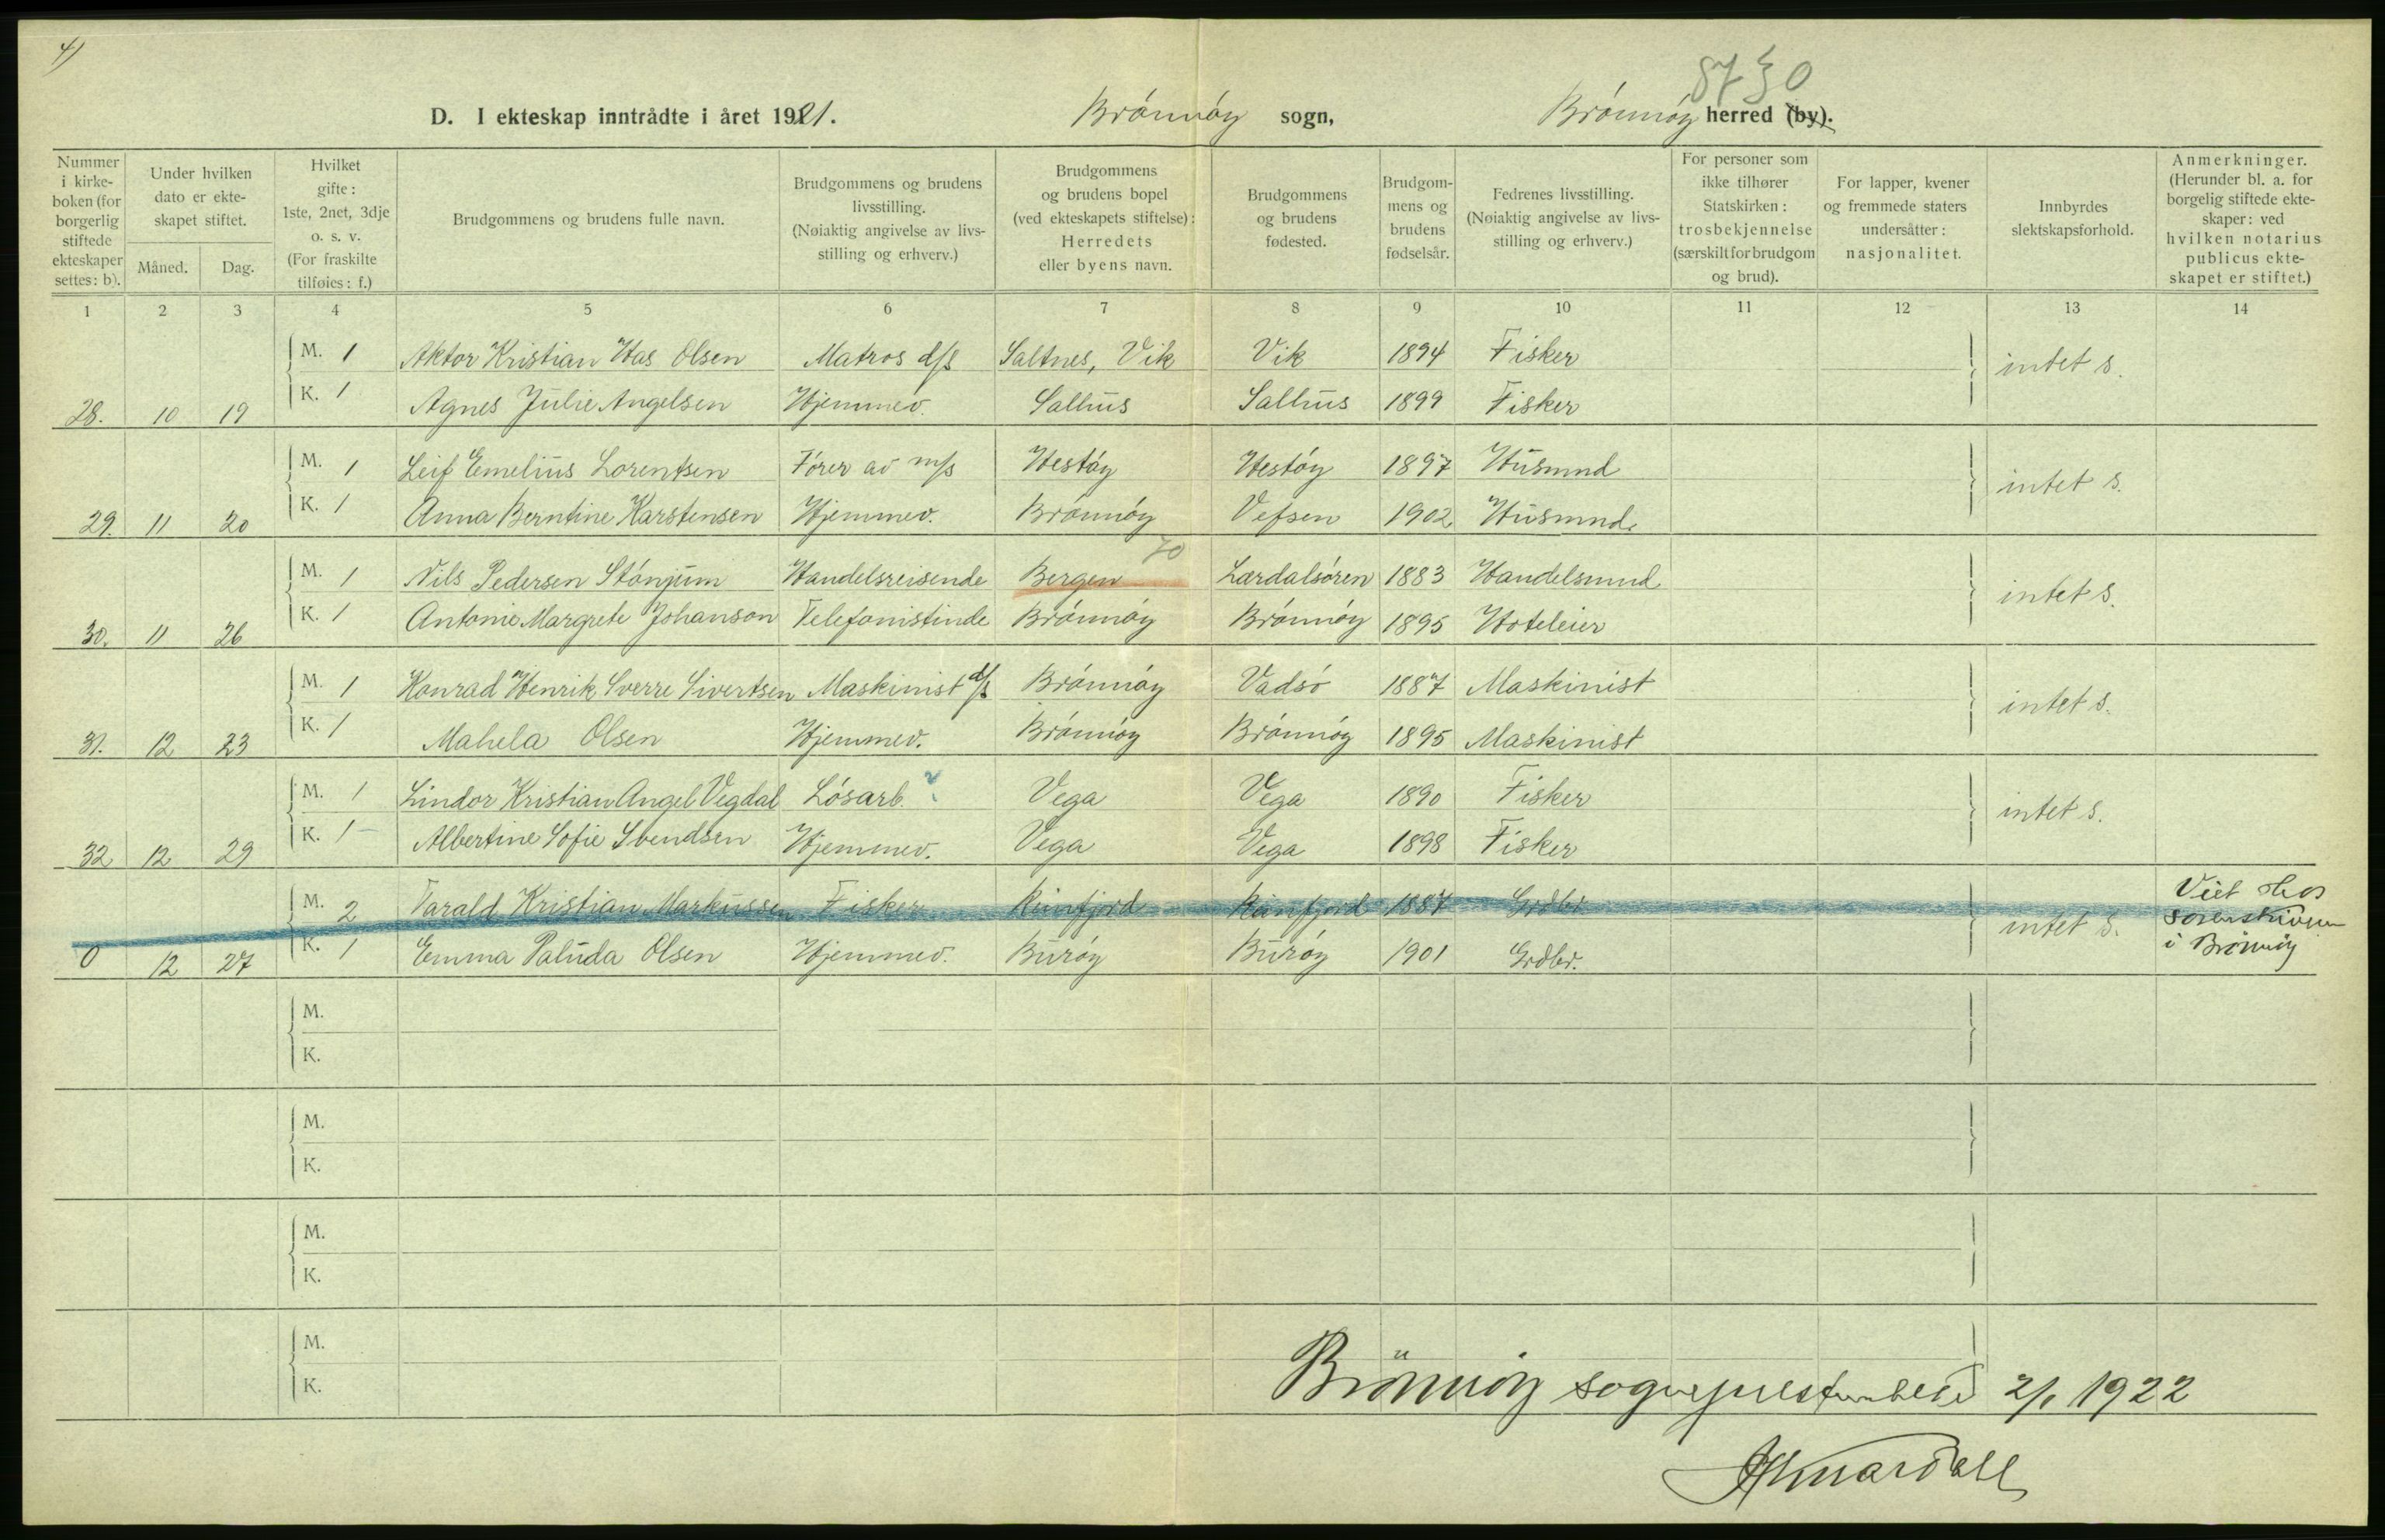 4)
8730
D. I ekteskap inntrådte i året 1921. Brönnöy sogn, Brönnöy herred (by).
Nummer i kirke-boken (for borgerlig stiftede ekteskaper settes: b).
Under hvilken dato er ekte-skapet stiftet.
Måned. Dag.
Hvilket gifte: 1ste, 2net, 3dje o. s. v. (For fraskilte tilføies: f.)
Brudgommens og brudens fulle navn.
Brudgommens og brudens livsstilling. (Nøiaktig angivelse av livs-stilling og erhverv.)
Brudgommens og brudens bopel (ved ekteskapets stiftelse): Herredets eller byens navn.
Brudgommens og brudens fødested.
Brudgom-mens og brudens fødselsår.
Fedrenes livsstilling. (Nøiaktig angivelse av livs-stilling og erhverv.)
For personer som ikke tilhører Statskirken: trosbekjennelse (særskilt for brudgom og brud).
For lapper, kvener og fremmede staters undersåtter: nasjonalitet.
Innbyrdes slektskapsforhold.
Anmerkninger. (Herunder bl. a. for borgelig stiftede ekte-skaper: ved hvilken notarius publicus ekte-skapet er stiftet.)
1 2 3 4 5 6 7 8 9 10 11 12 13 14
M. 1 Aktor Kristian Has Olsen Matros d/s Saltnes, Vik Vik 1894 Fisker intet s.
28. 10 19 K. 1 Agnes Julie Angelsen Hjemmev. Salhus Salhus 1899 Fisker
M. 1 Leif Emelius Lorentsen Förer av m/s Hestöy Hestöy 1897 Husmnd intet s.
29. 11 20 K. 1 Anna Berntine Karstensen Hjemmev. Brönnöy Vefsen 1902 Husmnd.
70
M. 1 Nils Pedersen Stönjum Handelsreisende Bergen Lærdalsören 1883 Handelsmnd intet s.
30. 11 26 K. 1 Antonie Margrete Johanson Telefonistinde Brönnöy Brönnöy 1895 Hoteleier
M. 1 Konrad Henrik Sverre Sivertsen Maskinist d/s Brönnöy Vadsö 1887 Maskinist intet s.
31. 12 23 K. 1 Mahela Olsen Hjemmev. Brönnöy Brönnöy 1895 Maskinist
M. 1 Lindor Kristian Angel Vegdal Lösarb. ? Vega Vega 1890 Fisker intet s.
32 12 29 K. 1 Albertine Sofie Svendsen Hjemmev. Vega Vega 1898 Fisker
M. 2 Tarald Kristian Markussen Fisker Rünfjord Rünfjord 1887 Grdbr. intet s. Viet hos sorenskriveren i Brönnöy
0 12 27 K. 1 Emma Paluda Olsen Hjemmev. Buröy Buröy 1901 Grdbr.
M.
K.
M.
K.
M.
K.
M.
K.
Brönnöy sogneprestembede 2/1 1922